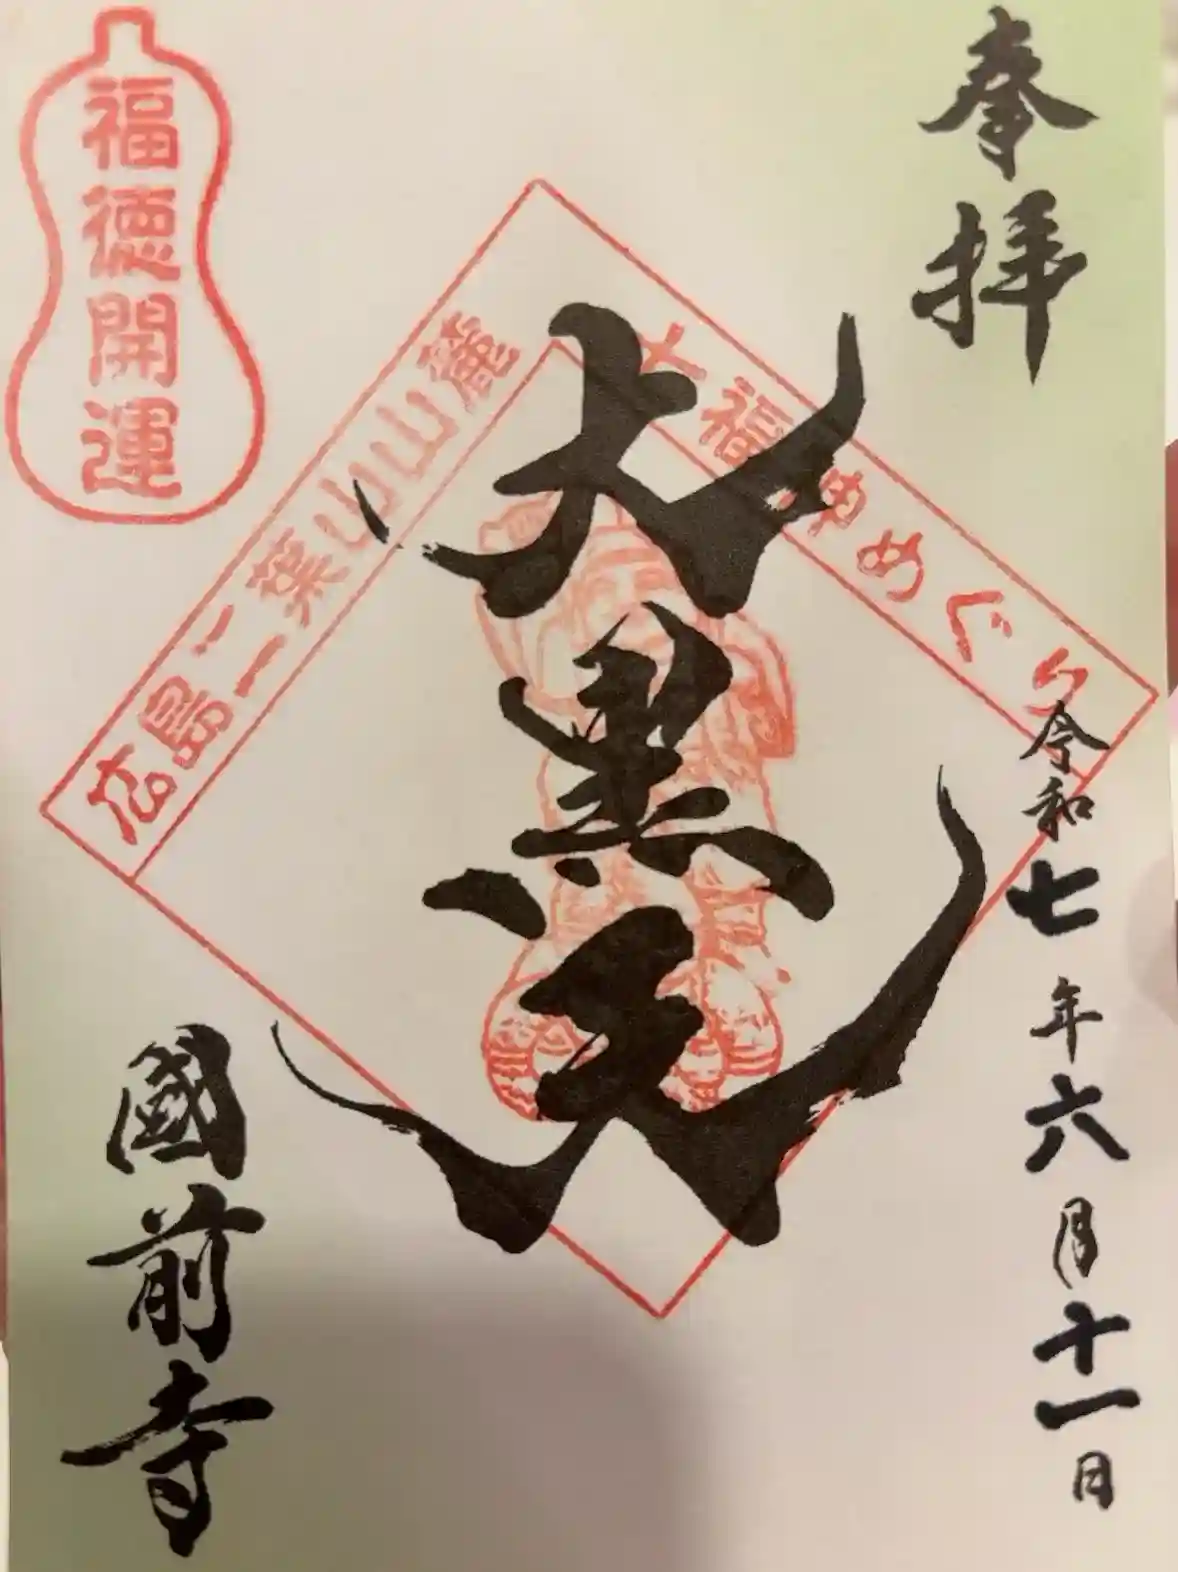 奉拝
令和七年六月十一日
大黒天
七福神めぐり
広島二葉山山麓
福徳開運
國前寺